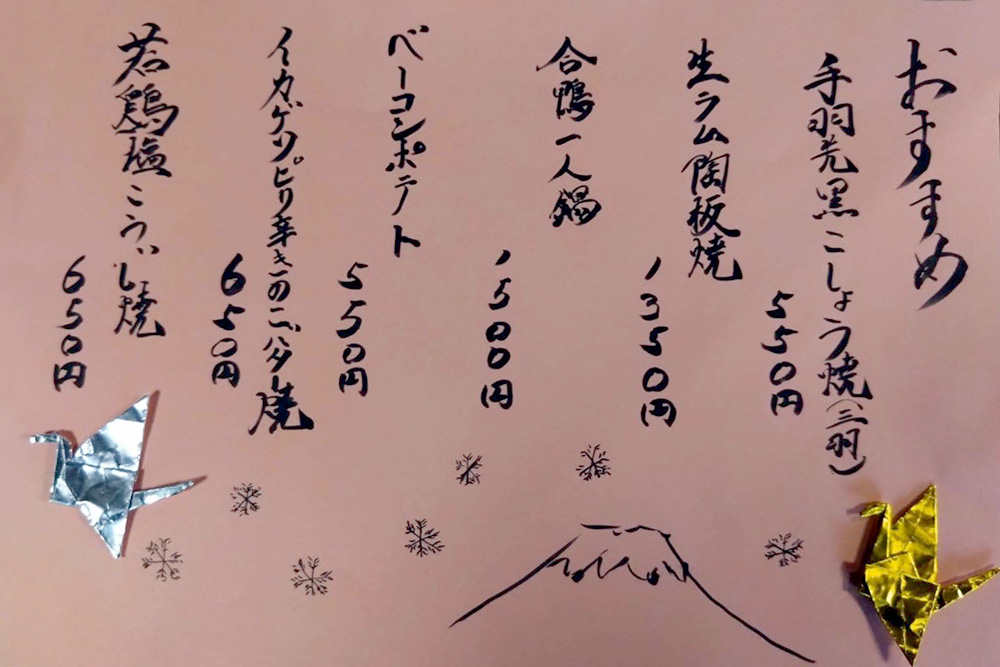 おすすめ
手羽先黒こしょう焼(三羽)
550円
生ラム陶板焼
1350円
合鴨一人鍋
1500円
ベーコンポテト
550円
イカゲソピリ辛きのこバター焼
650円
若鶏塩こうじ焼
650円